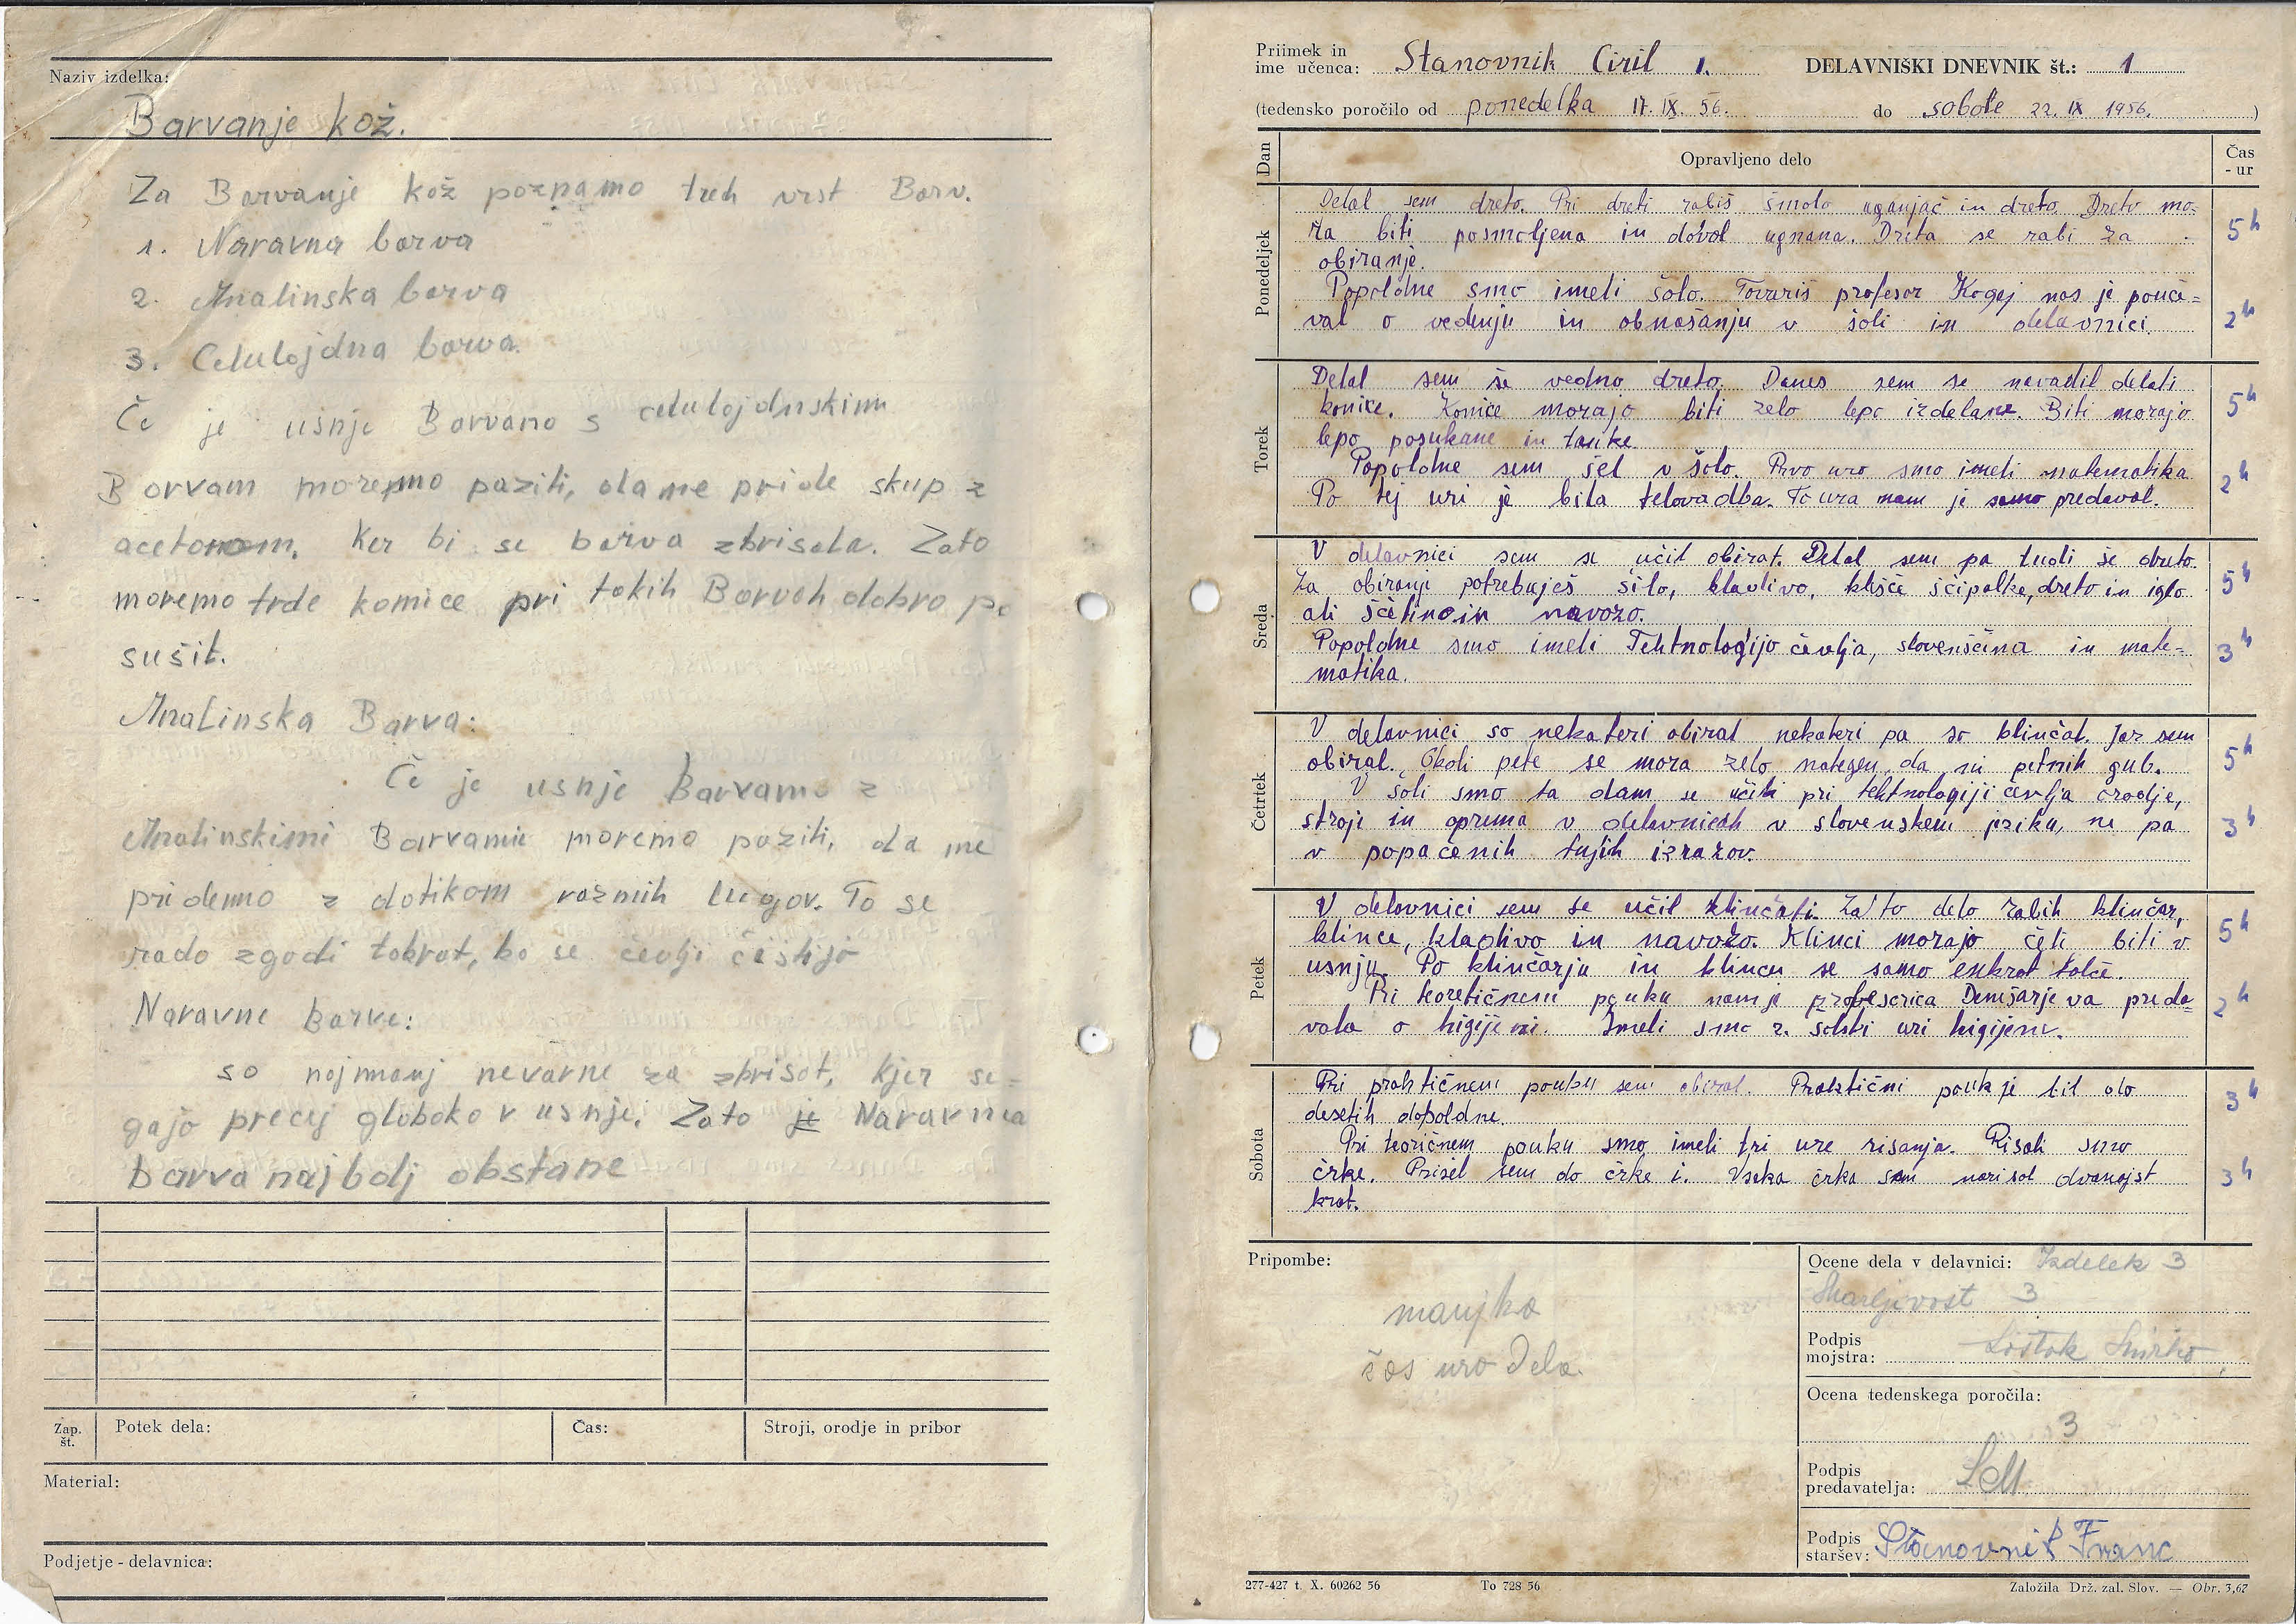 Naziv izdelka:
Barvanje kož.
Za Barvanje kož poznamo treh vrst Barv.
1. Naravna barva
2. Analinska barva
3. Celulojdna barva.
Če je usnje Barvano s celulojdnskim
Barvam moremo paziti, da ne pride skup z
acetonom. Ker bi se barva zbrisala. Zato
moremo trde komice pri takih Barvah dobro po
sušit.
Analinska Barva:
Če je usnje Barvamo z
Analinskimi Barvami moremo paziti, da ne
pridemo z dotikom raznih lugov. To se
rado zgodi takrat, ko se čevlji čistijo
Naravne Barve:
so najmanj nevarne za zbrisat, kjer se=
gajo precej globoko v usnje. Zato je Naravna
barva najbolj obstane
Zap. št.
Potek dela:
Čas:
Stroji, orodje in pribor
Material:
Podjetje - delavnica:
Priimek in
ime učenca: Stanovnik Ciril 1. DELAVNIŠKI DNEVNIK št.: 1
(tedensko poročilo od ponedelka 17. IX. 56. do sobote 22. IX 1956. )
Dan Opravljeno delo Čas - ur
Ponedeljek
Delal sem dreto. Pri dreti rabiš šmolo uganjač in dreto. Dreta mo-
ra biti posmoljena in dovol ugnana. Dreta se rabi za 5h
obiranje.
Popoldne smo imeli šolo. Tovariš profesor Kogej nas je pouče=
val o vedenju in obnašanju v šoli in delavnici. 2h
Torek
Delal sem še vedno dreto. Danes sem se navadil delati
konice. Konice morajo biti zelo lepo izdelane. Biti morajo 5h
lepo posukane in tanke.
Popoldne sem šel v šolo. Prvo uro smo imeli matematika
Po tej uri je bila telovadba. To ura nam je samo predaval. 2h
Sreda
V delavnici sem se učil obirat. Delal sem pa tudi še dreto.
Za obiranje potrebuješ šilo, kladivo, klešče ščipalke, dreto in iglo 5h
ali ščetino in navozo.
Popoldne smo imeli Tehtnologijo čevlja, slovenščina in mate- 3h
matika.
Četrtek
V delavnici so nekateri obiral nekateri pa so klinčal. Jaz sem
obiral. Okoli pete se mora zelo nategen, da ni petnih gub. 5h
V šoli smo ta dam se učili pri tehtnologiji čevlja orodje,
stroje in oprema v delavnicah v slovenskem jeziku, ne pa 3h
v popačenih tujih izrazov.
Petek
V delavnici sem se učil klinčati. Za to delo rabih klinčar,
klince, kladivo in navozo. Klinci morajo čeli biti v 5h
usnju. Po klinčarju in klincu se samo enkrat tolče.
Pri teoretičnem pouku nam je profesorica Demšarjeva preda= 2h
vala o higijeni. Imeli smo 2. šolski uri higijene.
Sobota
Pri praktičnem pouku sem obiral. Praktični pouk je bil do 3h
desetih dopoldne.
Pri teoričnem pouku smo imeli tri ure risanja. Risali smo
črke. Prišel sem do črke i. Vsaka črka sem narisal dvanajst 3h
krat.
Pripombe:
manjka
čas uro dela.
Ocene dela v delavnici: Izdelek 3
Marljivost 3
Podpis
mojstra:
Ocena tedenskega poročila:
3
Podpis
predavatelja:
Podpis
staršev: Stanovnik Franc
277-427 t. X. 60262 56 To 728 56 Založila Drž. zal. Slov. — Obr. 3,67